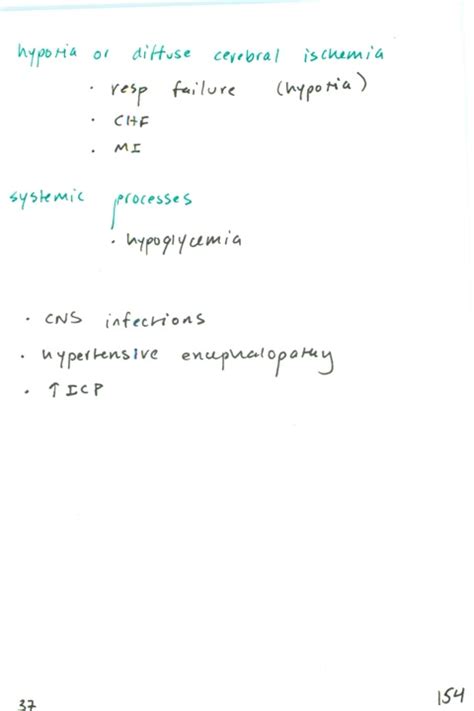 hypoxia or diffuse cerebral ischemia
· resp failure (hypoxia)
· CHF
· MI
systemic processes
· hypoglycemia
· CNS infections
· hypertensive encephalopathy
· ↑ICP
37
154